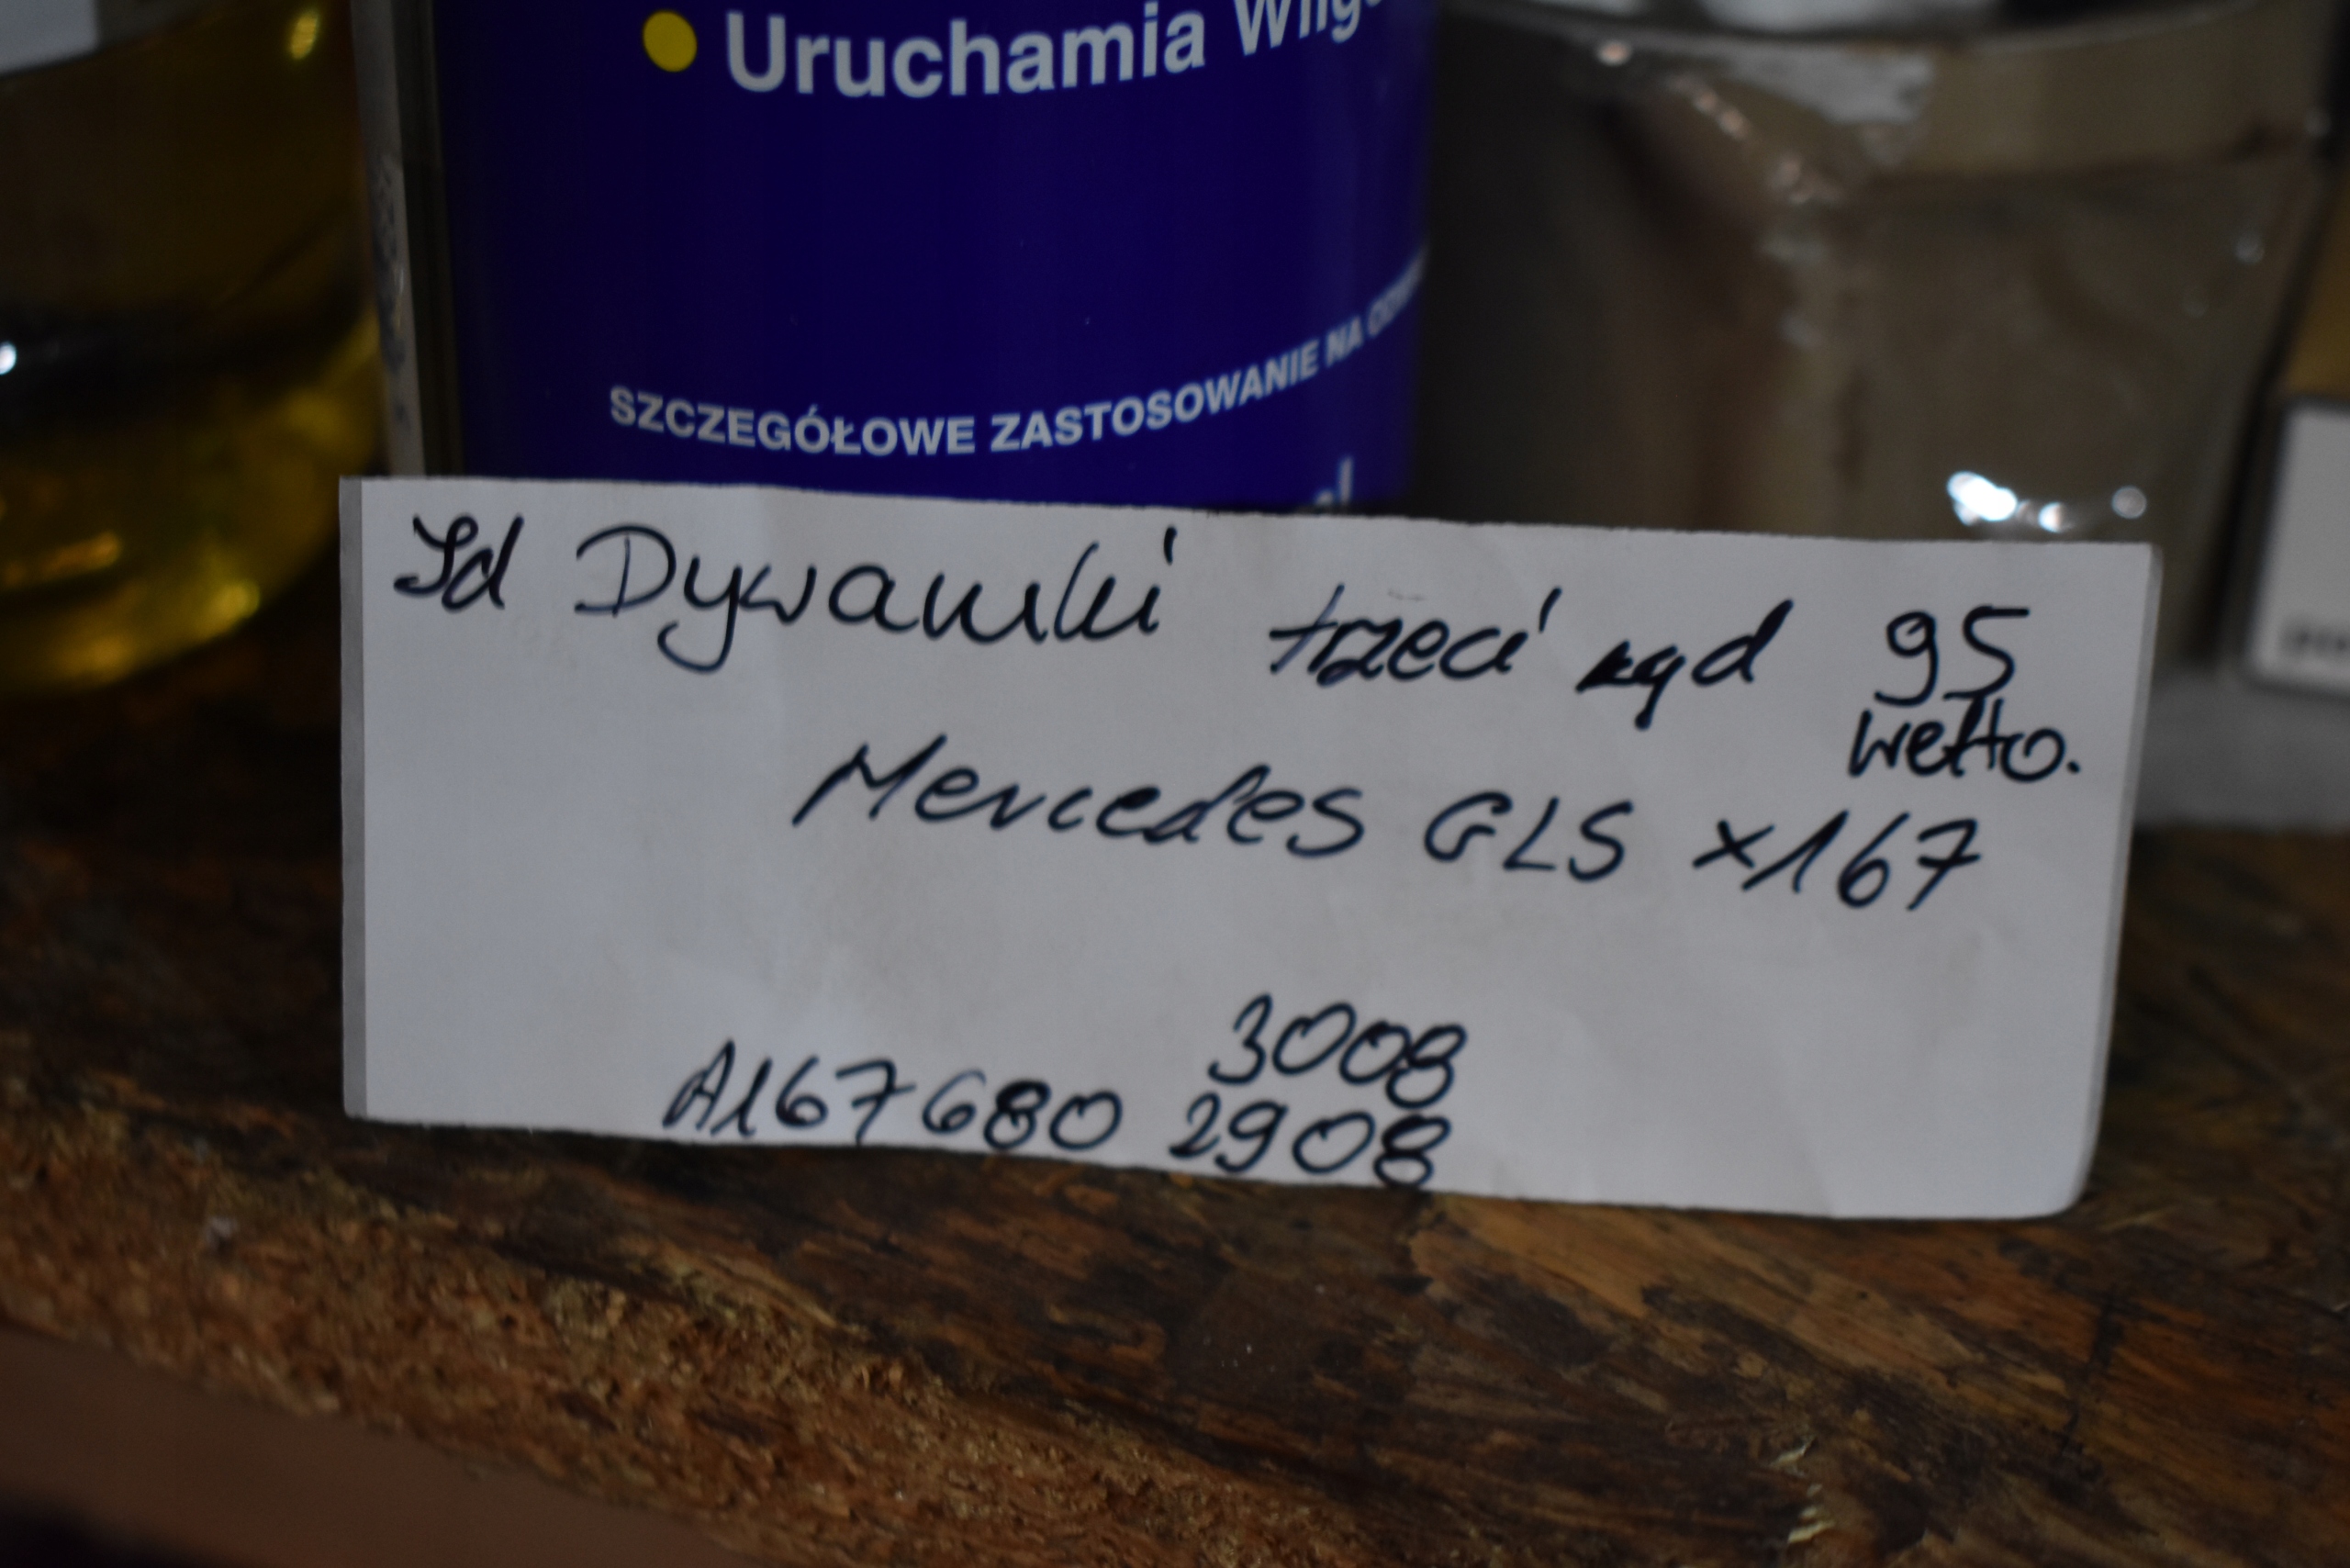 Uruchamia Wilg
SZCZEGÓŁOWE ZASTOSOWANIE NA
Id Dywaniki trzeci rząd 95
netto.
Mercedes GLS x167
3008
A167 680 2908